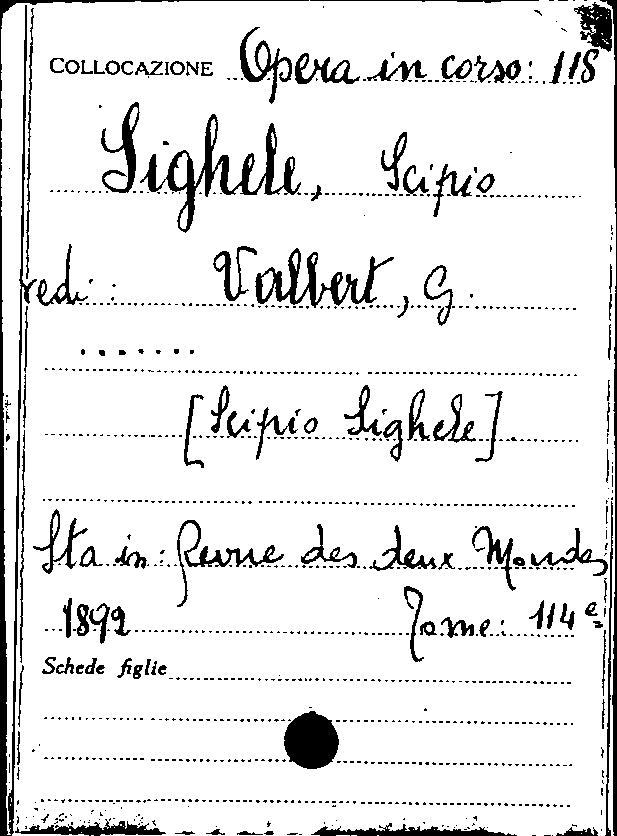 COLLOCAZIONE Opera in corso: 118
Sighele, Scipio
vedi: Valbert, G.
.......
[Scipio Sighele].
Sta in: Revue des deux Mondes
1892 Tome: 114e
Schede figlie